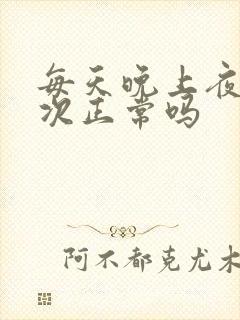 每天晚上夜
次正常吗
阿不都克尤木